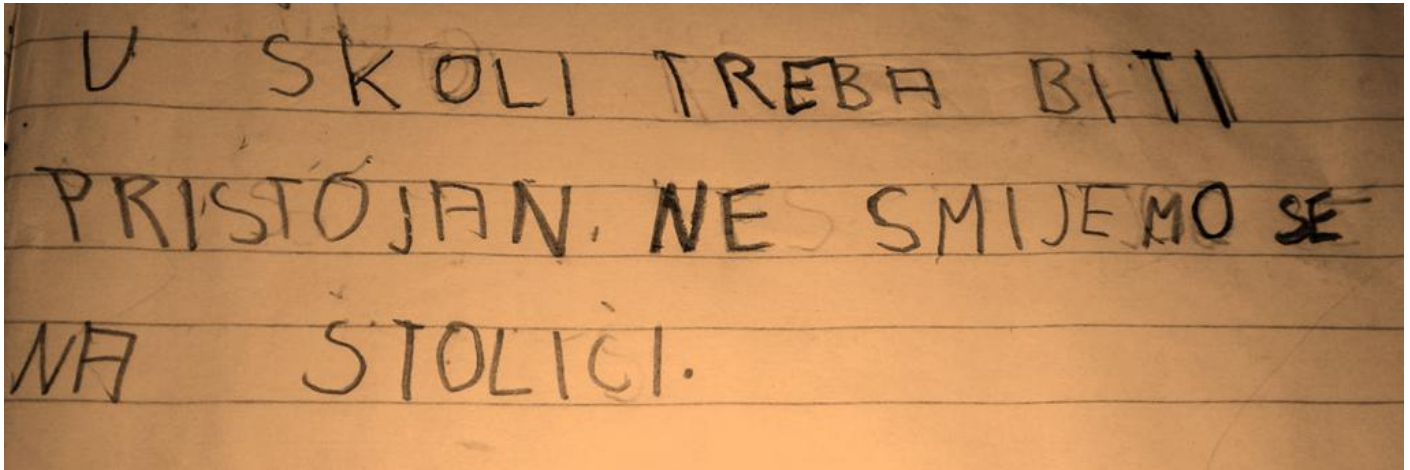 U ŠKOLI TREBA BITI
PRISTOJAN. NE SMIJEMO SE
NA STOLICI.